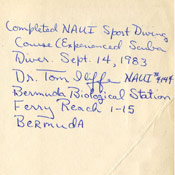 Completed NAUI Sport Diving
Course (Experienced Scuba
Diver. Sept. 14, 1983
Dr. Tom Iliffe NAUI #
Bermuda Biological Station
Ferry Reach 1-15
BERMUDA